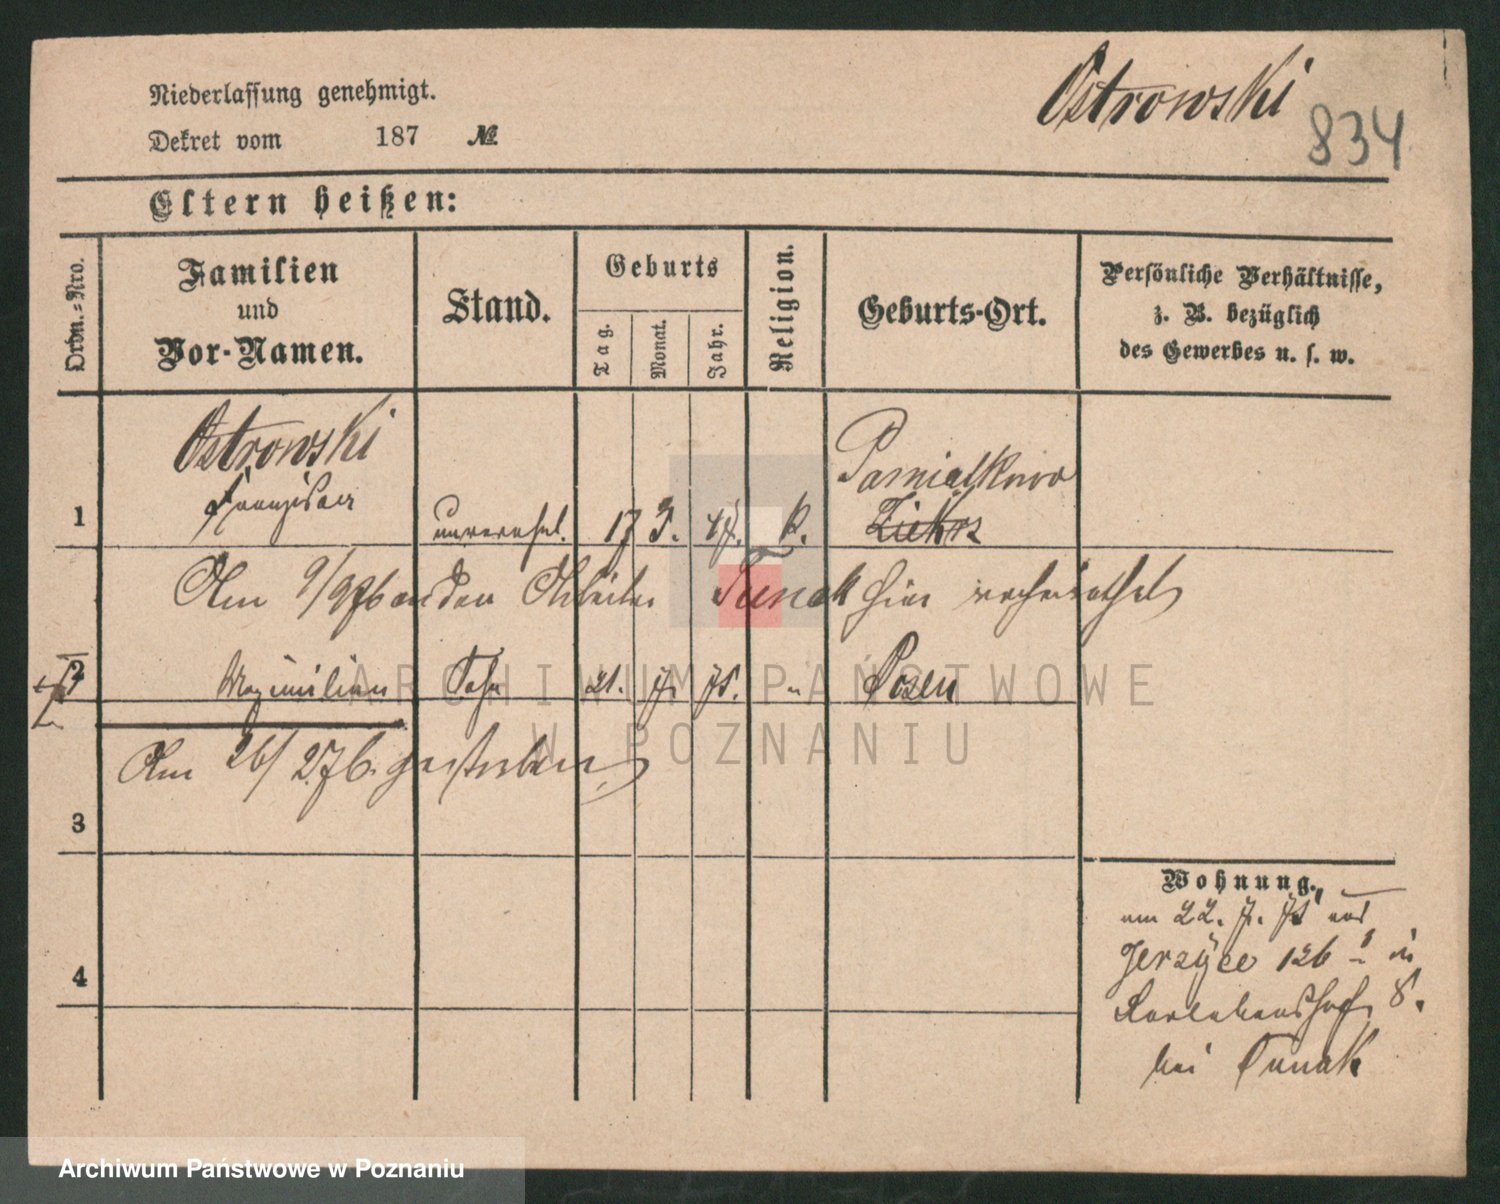 Niederlassung genehmigt.
Ostrowski
834
Dekret vom 187 №
Eltern heißen:
Ordn.-Nro.
Familien
und
Vor-Namen.
Stand.
Geburts
Tag.
Monat.
Jahr.
Religion.
Geburts-Ort.
Persönliche Verhältnisse,
z. B. bezüglich
des Gewerbes u. s. w.
Ostrowski
Pamiątkowo
1 unverehel. 17 3. k. Ziekrz
Am an den Arbeiter Tunak hier verheirathet
2 Maximilian Sohn 21. 7. 75. " Posen
Am 26/2 76. gestorben
3
Wohnung.
am 22. 7. 75 aus
4 Jerzyce 126 in
8.
bei Tunak
ARCHIWUM PAŃSTWOWE
W POZNANIU
Archiwum Państwowe w Poznaniu